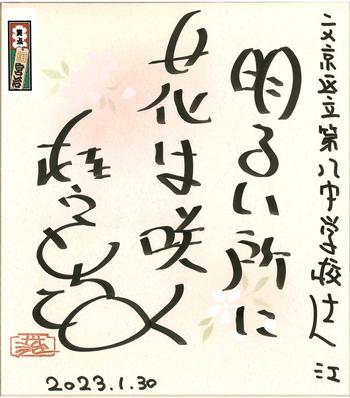 文京区立第八中学校さん江
明るい所に
花は咲く
桂宮治
2023.1.30